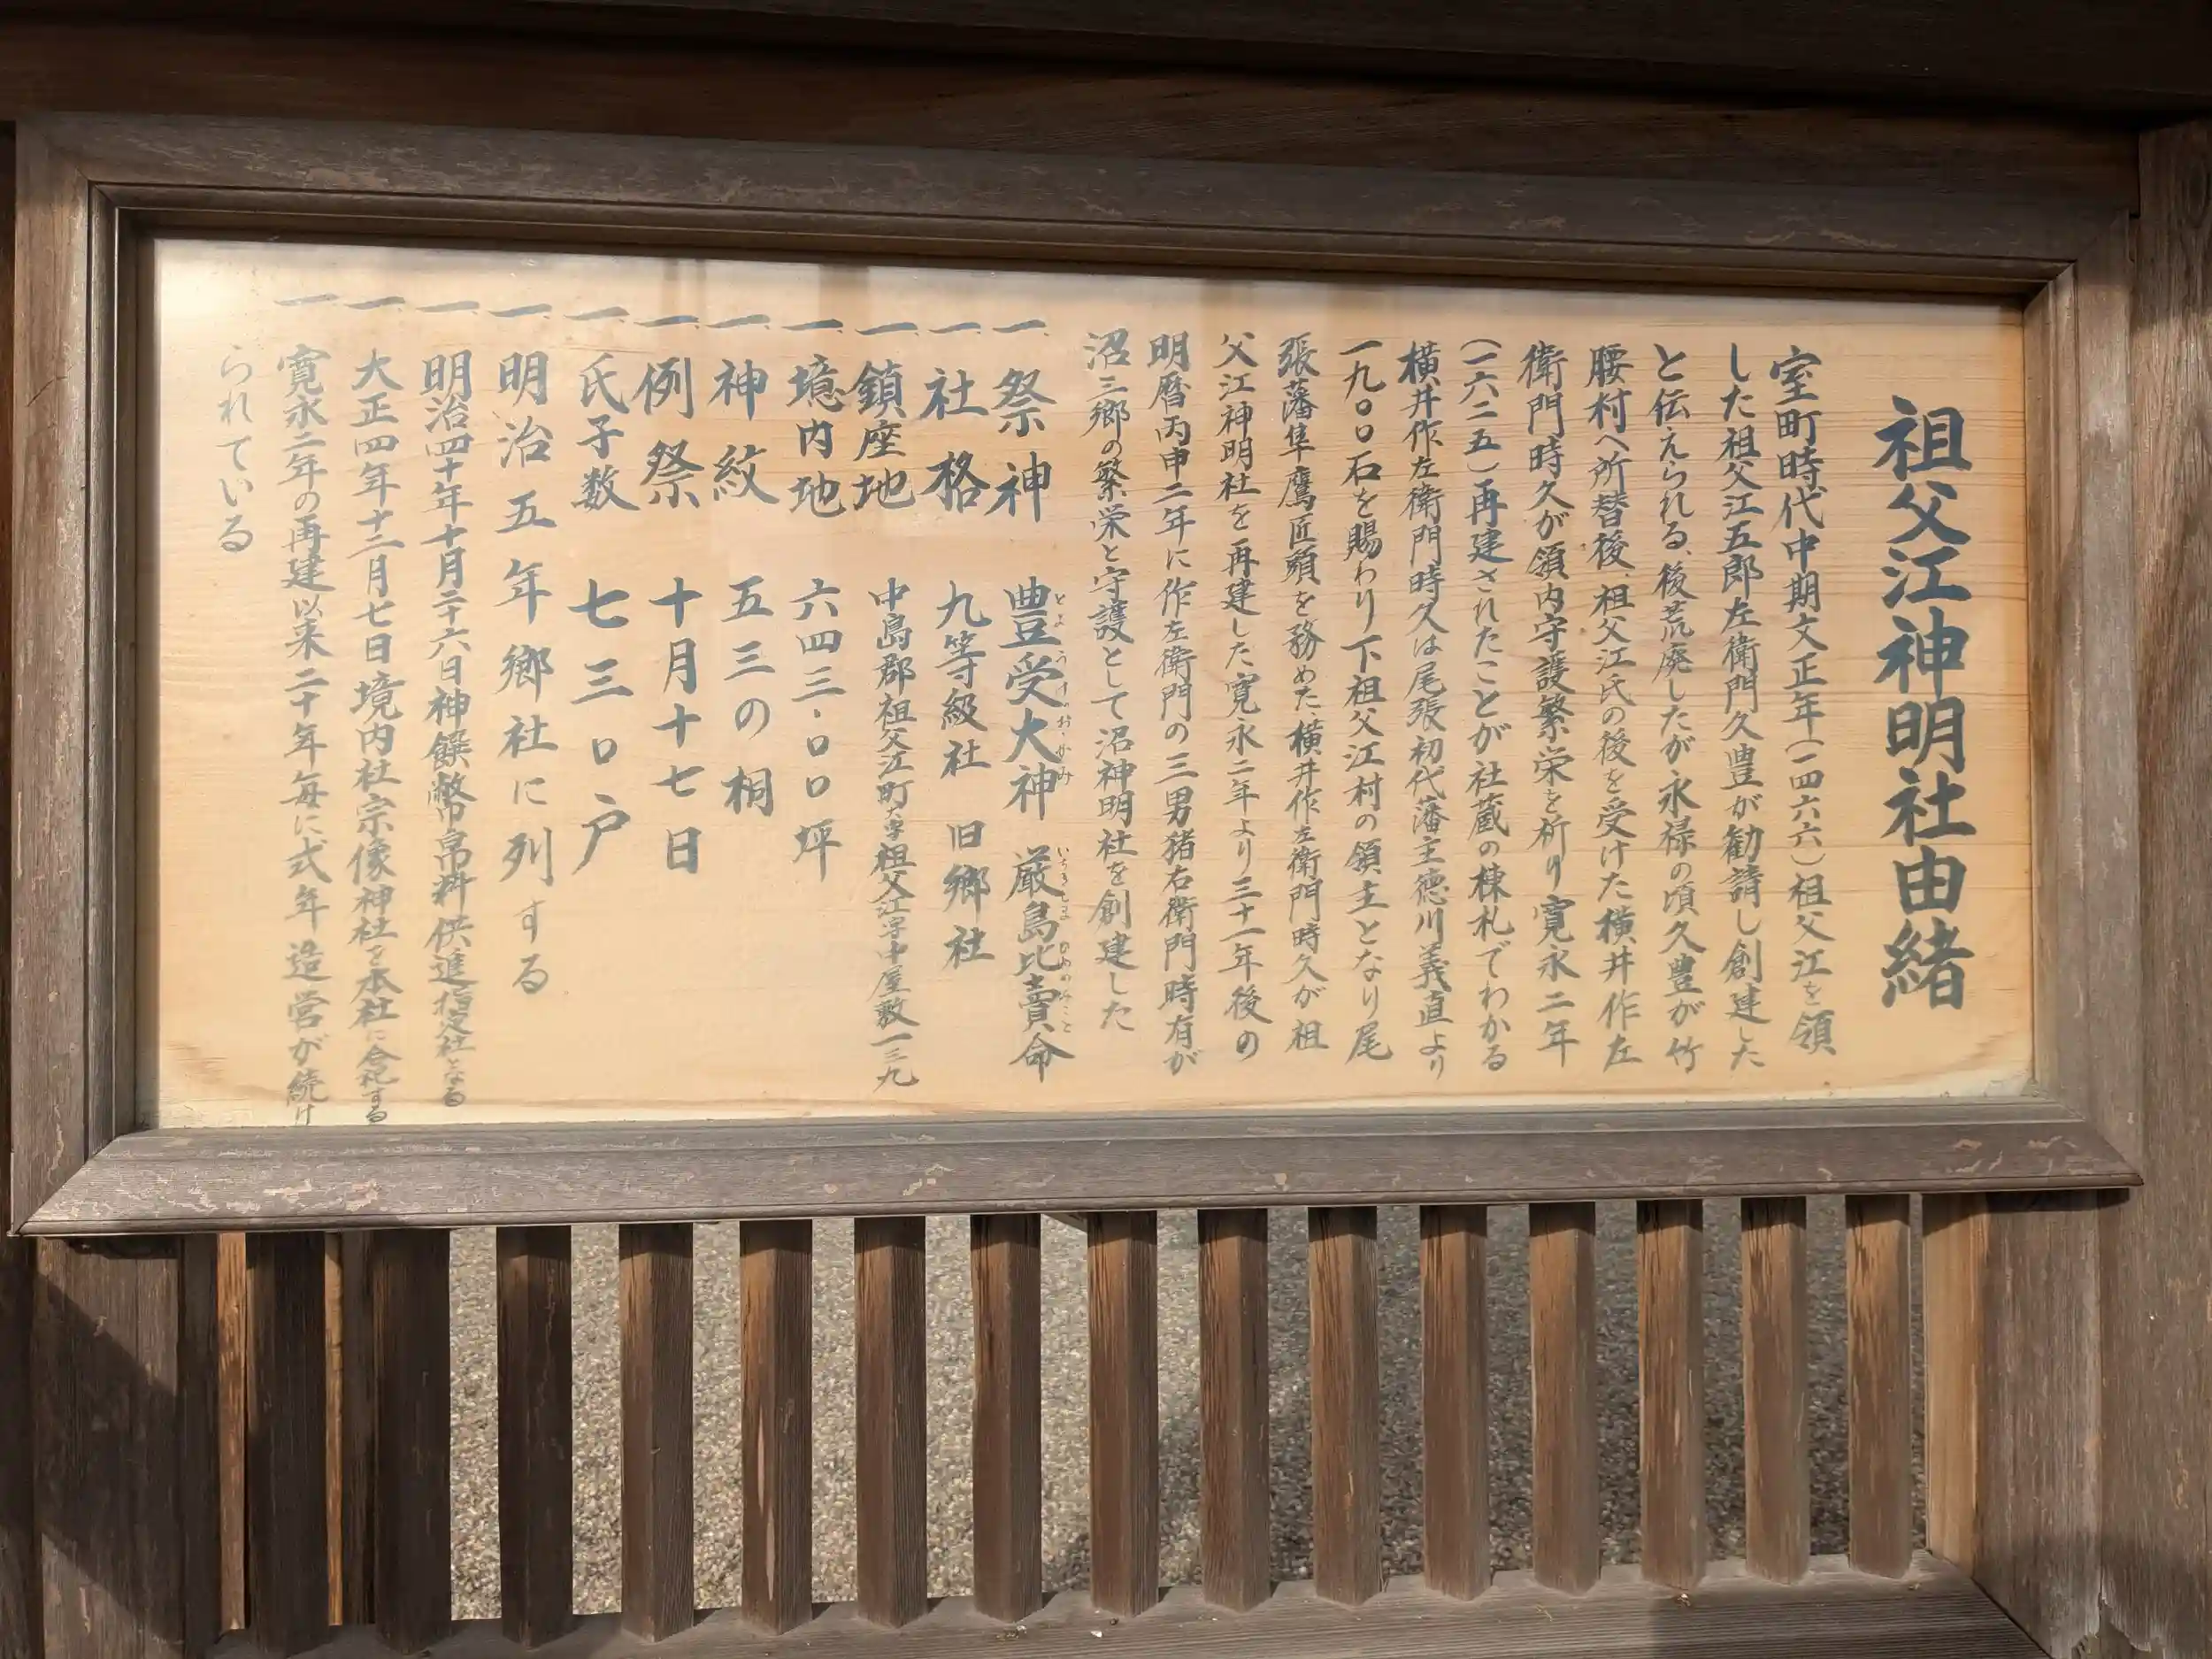 祖父江神明社由緒
室町時代中期文正年(一四六六)祖父江を領
した祖父江五郎左衛門久豊が勧請し創建した
と伝えられる、後荒廃したが永禄の頃久豊が竹
腰村へ所替後、祖父江氏の後を受けた横井作左
衛門時久が領内守護繁栄を祈り寛永二年
(一六二五)再建されたことが社蔵の棟札でわかる
横井作左衛門時久は尾張初代藩主徳川義直より
一九〇〇石を賜わり下祖父江村の領主となり尾
張藩隼鷹匠頭を務めた、横井作左衛門時久が祖
父江神明社を再建した寛永二年より三十一年後の
明暦丙申二年に作左衛門の三男猪右衛門時有が
沼三郷の繁栄と守護として沼神明社を創建した
一、祭神 豊受大神 厳島比賣命
とようけおおかみ いちきしまひめのみこと
一、社格 九等級社 旧郷社
一、鎮座地 中島郡祖父江町大字祖父江字中屋敷一三九
一、境内地 六四三・〇〇坪
一、神紋 五三の桐
一、例祭 十月十七日
一、氏子数 七三〇戸
一、明治五年郷社に列する
一、明治四十年十月二十六日神饌幣帛料供進指定社となる
一、大正四年十二月七日境内社宗像神社を本社に合祀する
一、寛永二年の再建以来二十年毎に式年造営が続け
られている